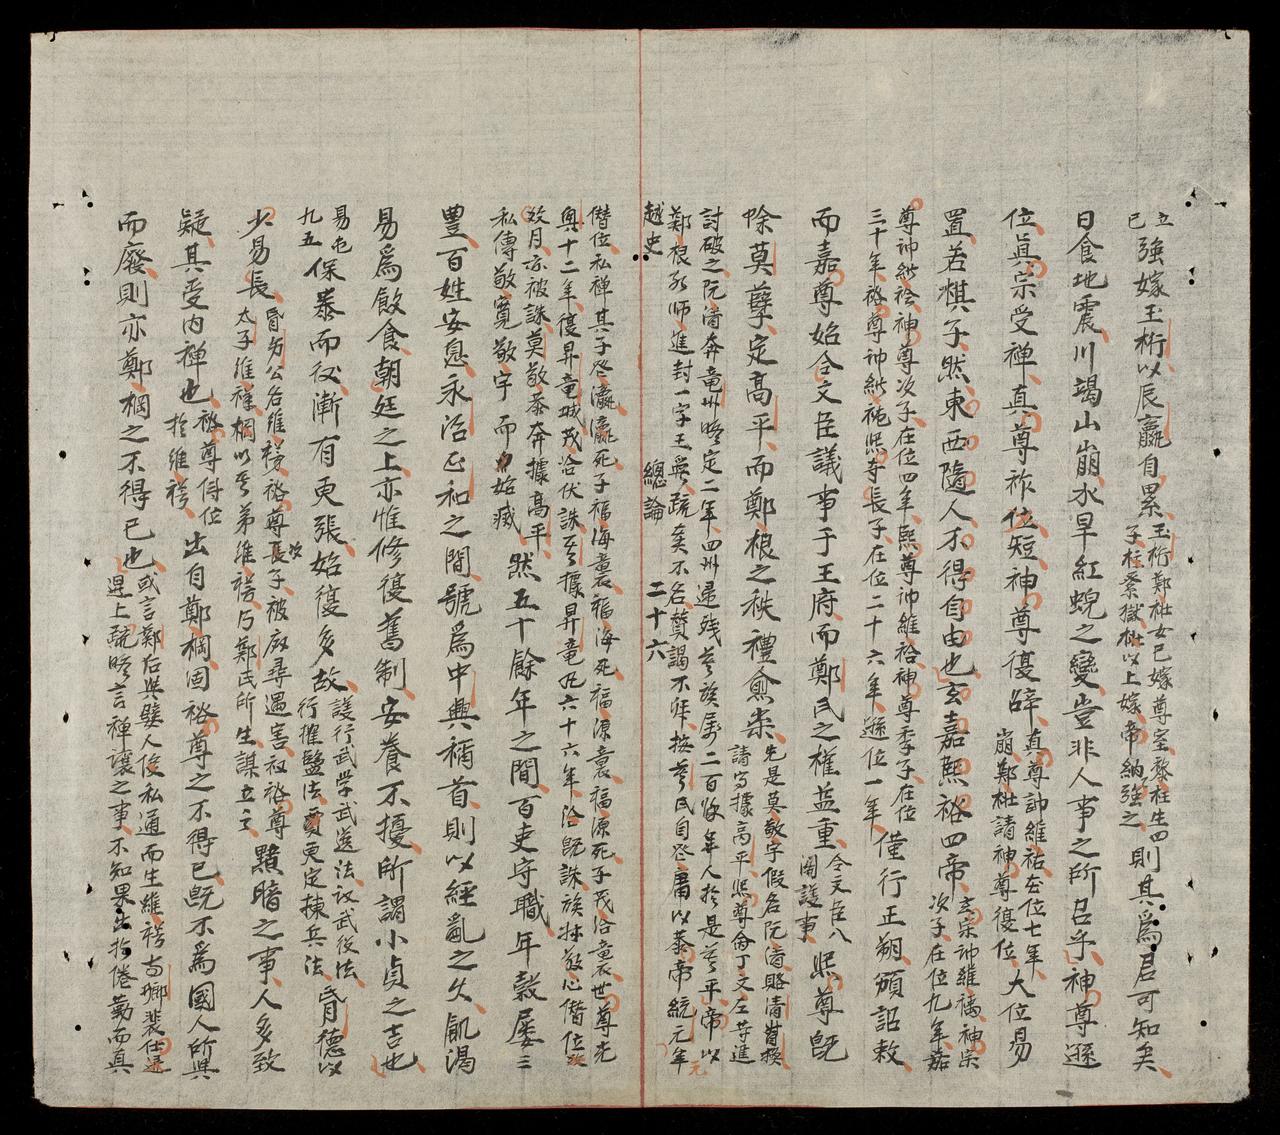 立己強嫁玉桁以辰嬴自累玉桁鄭杜女已嫁尊室黎柱生四子柱系獄杜以上嫁帝納強之則其爲君可知矣
日食地震川竭山崩水旱虹蜺之變豈非人事之所召乎神尊遜
位眞宗受禪真尊祚位短神尊復辟真尊諱維祐在位七年崩鄭杜請神尊復位大位易
置若棋子然東西隨人不得自由也玄嘉熙裕四帝玄宗諱維禑神宗次子在位九年嘉
尊神諱維禬神尊次子在位四年熙尊諱維祫神尊季子在位三十年裕尊諱維禟熙尊長子在位二十六年遜位一年僅行正朔頒詔敕
而嘉尊始令文臣議事于王府而鄭氏之權益重令文臣八閣議事熙尊旣
除莫孽定高平而鄭根之秩禮愈崇先是莫敬宇假名阮淯賂清督撫請寄據高平熙尊命丁文左等進
討破之阮淯奔竜州嗒定二年四州遂殘莫族屬二百餘年人於是莫平帝以鄭根爲師進封一字王奏疏奏不名贊謁不拜按莫氏自登庸以恭帝統元年
越史 總論 二十六
僭位私禪其子登瀛瀛死子福海襲福海死福源襲福源死子茂洽襲世尊光
興十二年復昇竜城茂洽伏誅莫據昇竜凡六十六年洽旣誅族敬止僭位
效月亦被誅莫敬恭奔據高平私傳敬寬敬宇而始滅然五十餘年之間百吏守職年穀屢
豐百姓安息永治正和之間號爲中興稱首則以經亂之久飢渴
易爲飲食朝廷之上亦惟修復舊制安養不擾所謂小貞之吉也
易屯九五保泰而後漸有更張始復多故議行武學武選法設武役法行榷鹽法更定揀兵法昏德以
少易長昏德公名維祊裕尊次子太子維祥長子被廢尋遇害初裕尊以其弟維祊乃鄭氏所生謀立之黯暗之事人多致
疑其受内禪也裕尊傳位於維祊出自鄭棡固裕尊之不得已旣不爲國人所與
而廢則亦鄭棡之不得已也或言鄭后與嬖人俊私通而生維祊言禪讓之事不知果出於倦勤而真